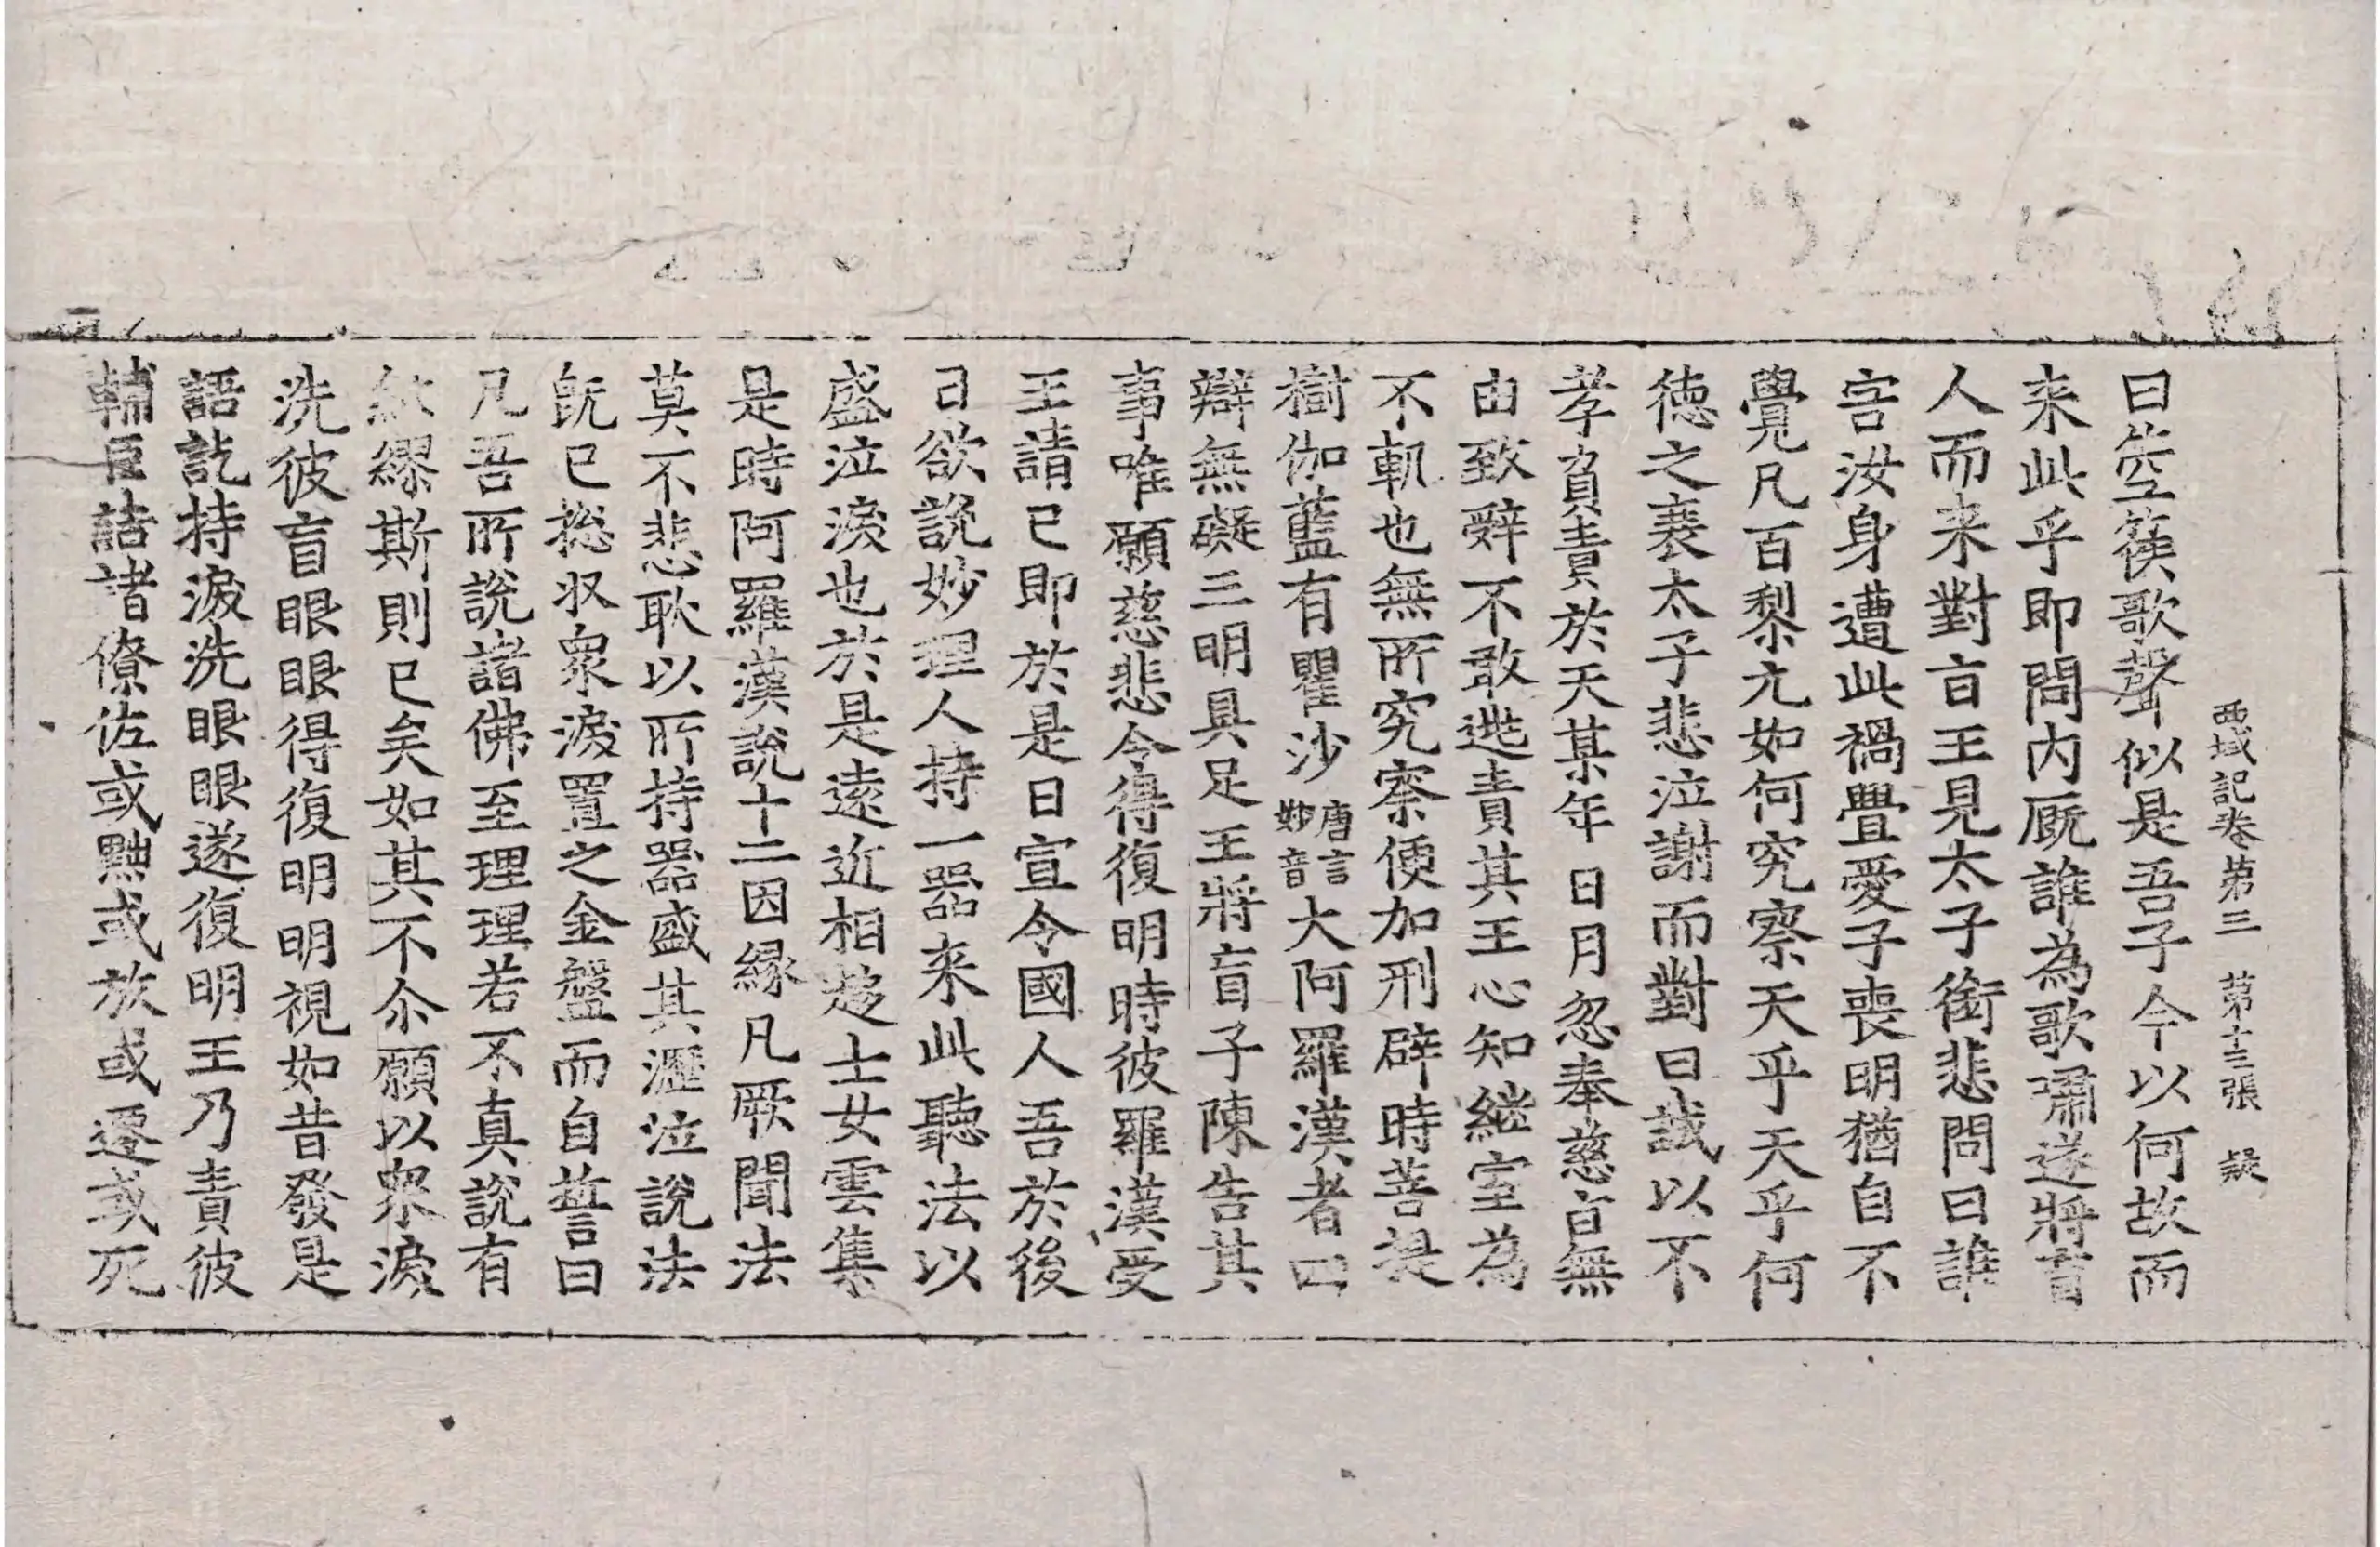 西域記卷第三 第十三張 疑
曰箜篌歌聲似是吾子今以何故而
来此乎即問内厩誰為歌嘯遂將盲
人而来對盲王見太子銜悲問曰誰
害汝身遭此禍舋愛子喪明猶自不
覺凡百黎元如何究察天乎天乎何
德之衰太子悲泣謝而對曰誠以不
孝負責於天某年日月忽奉慈旨無
由致辞不敢逃責其王心知継室為
不軌也無所究察便加刑辟時菩提
樹伽藍有瞿沙唐言妙音大阿羅漢者四
辯無礙三明具足王將盲子陳告其
事唯願慈悲令得復明時彼羅漢受
王請已即於是日宣令國人吾於後
日欲說妙理人持一器来此聽法以
盛泣淚也於是遠近相趍士女雲集
是時阿羅漢說十二因縁凡厥聞法
莫不悲耿以所持器盛其瀝泣說法
既已捴収衆淚置之金盤而自誓曰
凡吾所說諸佛至理理若不真說有
紕繆斯則已矣如其不尒願以衆淚
洗彼盲眼眼得復明明視如昔發是
語訖持淚洗眼眼遂復明王乃責彼
輔臣詰諸僚佐或黜或放或遷或死